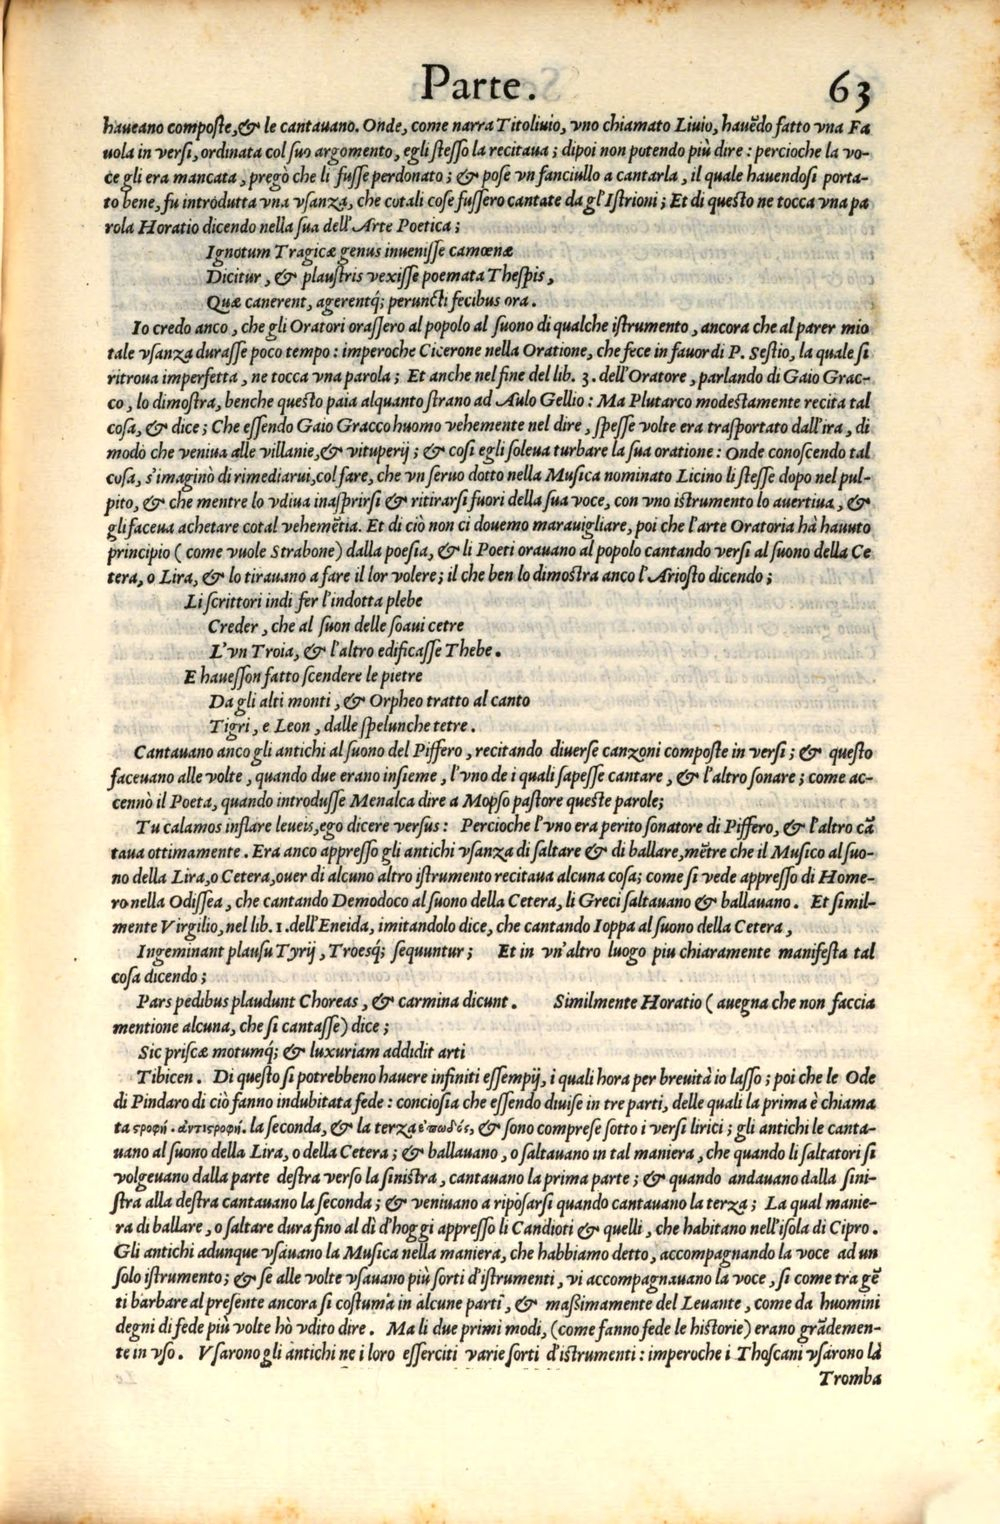 Parte. 63
haveano composte, & le cantavano. Onde, come narra Titolivio, vno chiamato Livio, havẽdo fatto vna Fa
vola in versi, ordinata col suo argomento, egli stesso la recitava; dipoi non potendo più dire: percioche la vo-
ce gli era mancata, pregò che li fusse perdonato; & pose vn fanciullo a cantarla, il quale havendosi porta-
to bene, fu introdutta vna vsanza, che cotali cose fussero cantate da gl'Istrioni; Et di questo ne tocca vna pa
rola Horatio dicendo nella sua dell'Arte Poetica;
Ignotum Tragicæ genus invenisse camœnæ
Dicitur, & plaustris vexisse poemata Thespis,
Quæ canerent, agerentq́; peruncti fecibus ora.
Io credo anco, che gli Oratori orassero al popolo al suono di qualche istrumento, ancora che al parer mio
tale vsanza durasse poco tempo: imperoche Cicerone nella Oratione, che fece in favor di P. Sestio, la quale si
ritrova imperfetta, ne tocca vna parola; Et anche nel fine del lib. 3. dell'Oratore, parlando di Gaio Grac-
co, lo dimostra, benche questo paia alquanto strano ad Aulo Gellio: Ma Plutarco modestamente recita tal
cosa, & dice; Che essendo Gaio Gracco huomo vehemente nel dire, spesse volte era trasportato dall'ira, di
modo che veniva alle villanie, & vituperij; & cosi egli soleva turbare la sua oratione: Onde conoscendo tal
cosa, s'imaginò di rimediarui, col fare, che vn servo dotto nella Musica nominato Licino li stesse dopo nel pul-
pito, & che mentre lo vdiva inasprirsi & ritirarsi fuori della sua voce, con vno istrumento lo avertiva, &
gli faceva achetare cotal vehemẽtia. Et di ciò non ci dovemo maravigliare, poi che l'arte Oratoria hà havuto
principio (come vuole Strabone) dalla poesia, & li Poeti oravano al popolo cantando versi al suono della Ce
tera, o Lira, & lo tiravano a fare il lor volere; il che ben lo dimostra anco l'Ariosto dicendo;
Li scrittori indi fer l'indotta plebe
Creder, che al suon delle soavi cetre
L'vn Troia, & l'altro edificasse Thebe.
E havesson fatto scendere le pietre
Da gli alti monti, & Orpheo tratto al canto
Tigri, e Leon, dalle spelunche tetre.
Cantavano anco gli antichi al suono del Piffero, recitando diverse canzoni composte in versi; & questo
facevano alle volte, quando due erano insieme, l'uno de i quali sapesse cantare, & l'altro sonare; come ac-
cennò il Poeta, quando introdusse Menalca dire a Mopso pastore queste parole;
Tu calamos inflare leveis, ego dicere versus: Percioche l'vno era perito sonatore di Piffero, & l'altro cã
tava ottimamente. Era anco appresso gli antichi vsanza di saltare & di ballare, mẽtre che il Musico al suo-
no della Lira, o Cetera, over di alcuno altro istrumento recitava alcuna cosa; come si vede appresso di Home-
ro nella Odissea, che cantando Demodoco al suono della Cetera, li Greci saltavano & ballavano. Et simil-
mente Virgilio, nel lib. 1. dell'Eneida, imitandolo dice, che cantando Ioppa al suono della Cetera,
Ingeminant plausu Tyrij, Troesq́; sequuntur; Et in vn'altro luogo piu chiaramente manifesta tal
cosa dicendo;
Pars pedibus plaudunt Choreas, & carmina dicunt. Similmente Horatio (avegna che non faccia
mentione alcuna, che si cantasse) dice;
Sic priscæ motumq́; & luxuriam addidit arti
Tibicen. Di questo si potrebbeno havere infiniti essempij, i quali hora per brevità io lasso; poi che le Ode
di Pindaro di ciò fanno indubitata fede: conciosia che essendo divise in tre parti, delle quali la prima è chiama
ta ςροφή. ἀντιςροφή. la seconda, & la terza ἐπωδός, & sono comprese sotto i versi lirici; gli antichi le canta-
vano al suono della Lira, o della Cetera; & ballavano, o saltavano in tal maniera, che quando li saltatori si
volgevano dalla parte destra verso la sinistra, cantavano la prima parte; & quando andavano dalla sini-
stra alla destra cantavano la seconda; & venivano a riposarsi quando cantavano la terza; La qual manie-
ra di ballare, o saltare dura fino al dì d'hoggi appresso li Candioti & quelli, che habitano nell'isola di Cipro.
Gli antichi adunque vsavano la Musica nella maniera, che habbiamo detto, accompagnando la voce ad un
solo istrumento; & se alle volte vsavano più sorti d'istrumenti, vi accompagnavano la voce, si come tra gẽ
ti barbare al presente ancora si costuma in alcune parti, & maßimamente del Levante, come da huomini
degni di fede più volte hò vdito dire. Ma li due primi modi, (come fanno fede le historie) erano grãdemen-
te in vso. Vsarono gli antichi ne i loro esserciti varie sorti d'istrumenti: imperoche i Thoscani vsarono la
Tromba